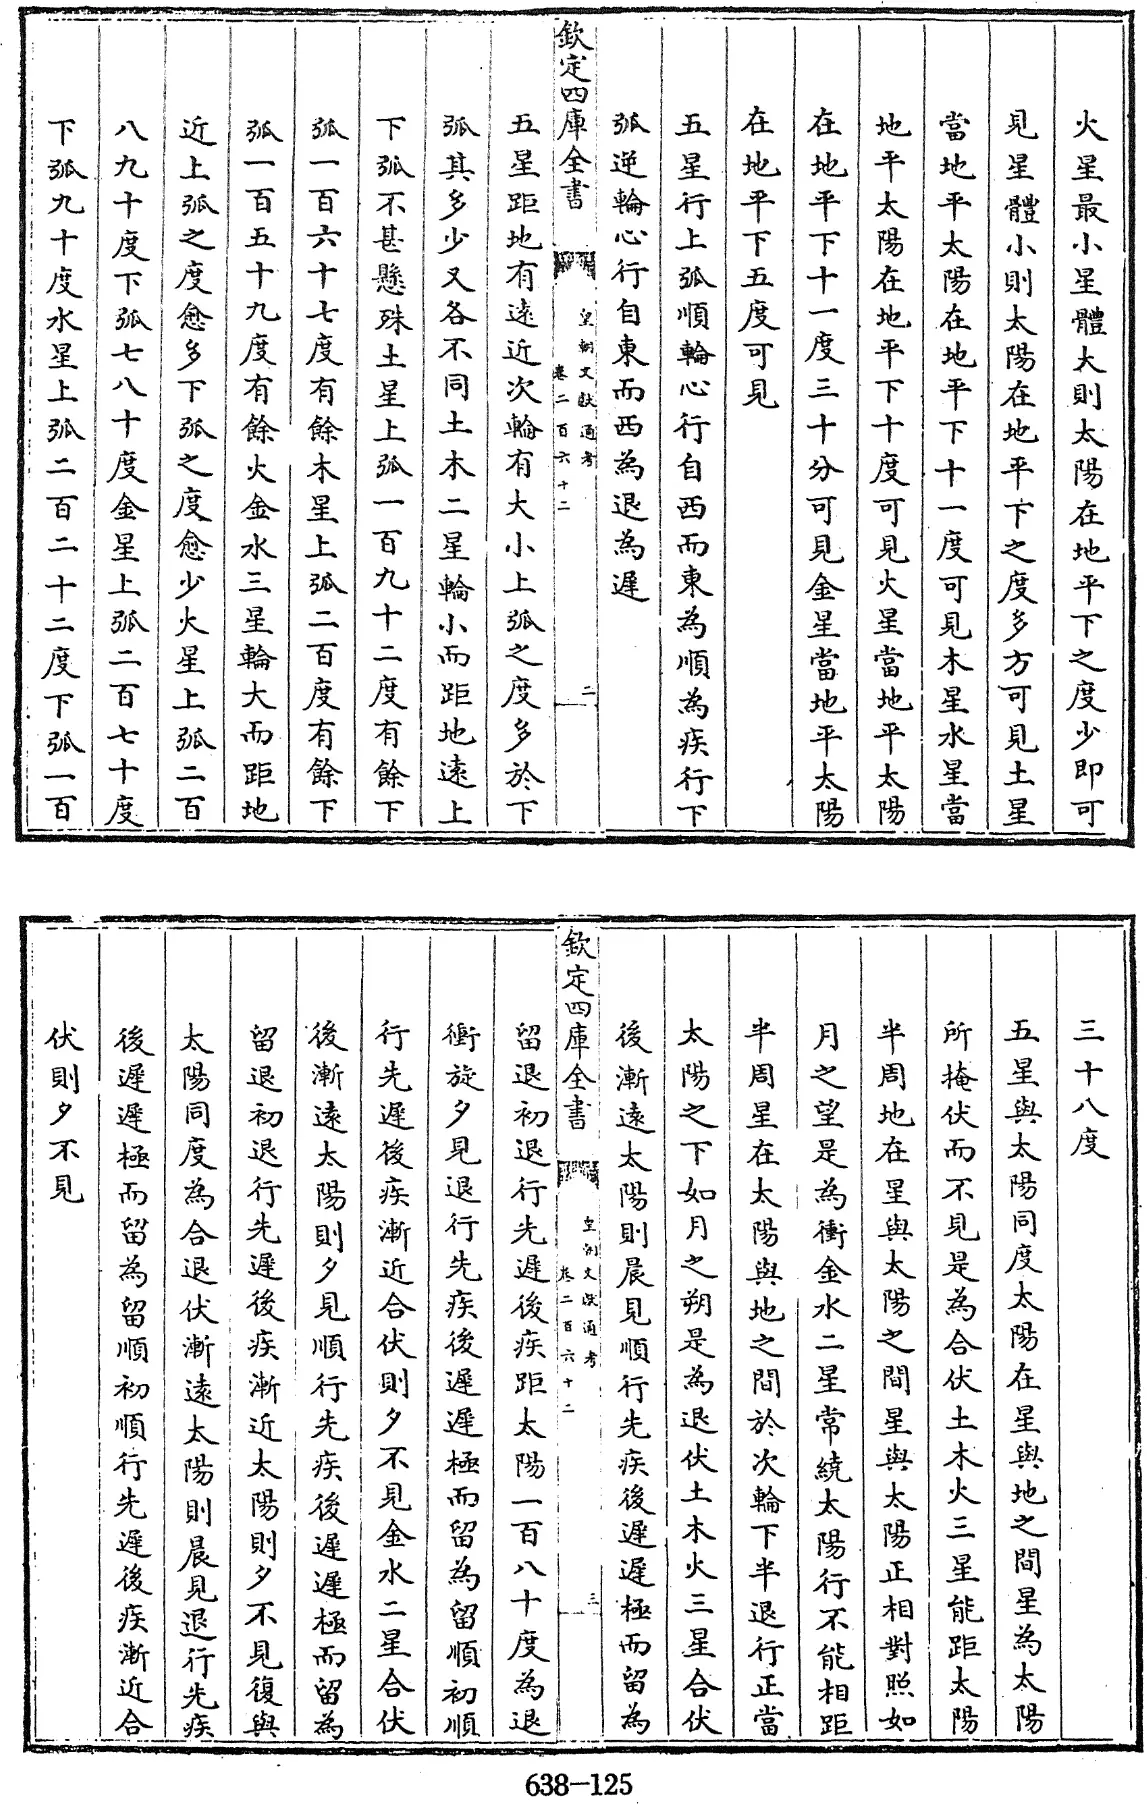 火星最小星體大則太陽在地平下之度少即可
見星體小則太陽在地平下之度多方可見土星
當地平太陽在地平下十一度可見木星水星當
地平太陽在地平下十度可見火星當地平太陽
在地平下十一度三十分可見金星當地平太陽
在地平下五度可見
五星行上弧順輪心行自西而東為順為疾行下
弧逆輪心行自東而西為退為遲
欽定四庫全書
皇朝文獻通考
卷二百六十二
二
五星距地有遠近次輪有大小上弧之度多於下
弧其多少又各不同土木二星輪小而距地遠上
下弧不甚懸殊土星上弧一百九十二度有餘下
弧一百六十七度有餘木星上弧二百度有餘下
弧一百五十九度有餘火金水三星輪大而距地
近上弧之度愈多下弧之度愈少火星上弧二百
八九十度下弧七八十度金星上弧二百七十度
下弧九十度水星上弧二百二十二度下弧一百
三十八度
五星與太陽同度太陽在星與地之間星為太陽
所掩伏而不見是為合伏土木火三星能距太陽
半周地在星與太陽之間星與太陽正相對照如
月之望是為衝金水二星常繞太陽行不能相距
半周星在太陽與地之間於次輪下半退行正當
太陽之下如月之朔是為退伏土木火三星合伏
後漸遠太陽則晨見順行先疾後遲遲極而留為
欽定四庫全書
皇朝文獻通考
卷二百六十二
三
留退初退行先遲後疾距太陽一百八十度為退
衝旋夕見退行先疾後遲遲極而留為留順初順
行先遲後疾漸近合伏則夕不見金水二星合伏
後漸遠太陽則夕見順行先疾後遲遲極而留為
留退初退行先遲後疾漸近太陽則夕不見復與
太陽同度為合退伏漸遠太陽則晨見退行先疾
後遲遲極而留為留順初順行先遲後疾漸近合
伏則夕不見
638-125